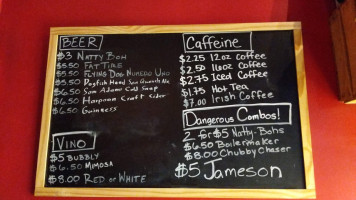 BEER
$3 NATTY BOH
$5.50 FAT TIRE
$5.50 FLYING DOG NUMERO UNO
$5.50 Dogfish Head Sea Quench Ale
$6.50 Sam Adams Cold Snap
$6.50 Harpoon Craft Cider
$6.50 Guinness
VINO
$5 BUBBLY
$6.50 MIMOSA
$8.00 RED OR WHITE
Caffeine
$2.25 12oz Coffee
$2.50 16oz Coffee
$2.75 Iced Coffee
$1.75 Hot Tea
$7.00 Irish Coffee
Dangerous Combos!
2 for $5 Natty-Bohs
$6.50 Boilermaker
$8.00 Chubby Chaser
$5 Jameson